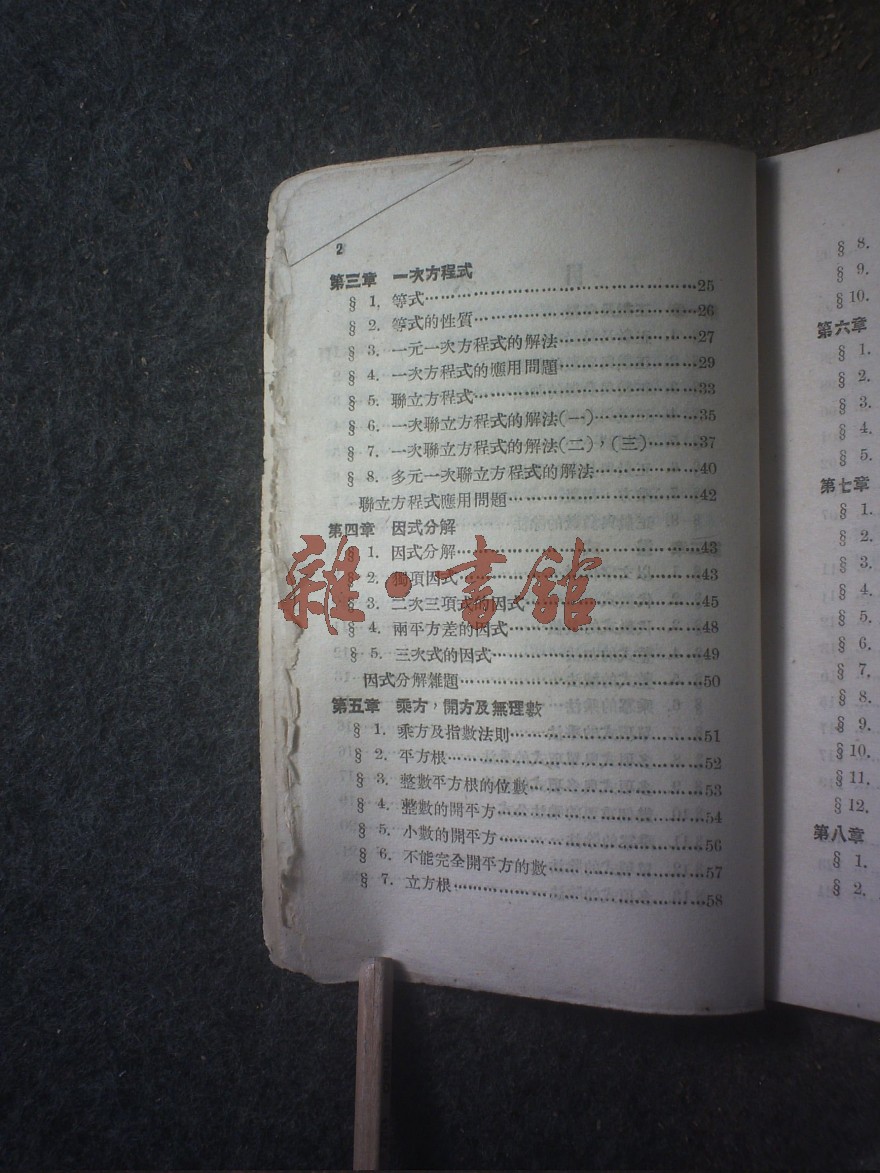 2
第三章 一次方程式
§ 1. 等式……25
§ 2. 等式的性質……26
§ 3. 一元一次方程式的解法……27
§ 4. 一次方程式的應用問題……29
§ 5. 聯立方程式……33
§ 6. 一次聯立方程式的解法(一)……35
§ 7. 一次聯立方程式的解法(二),(三)……37
§ 8. 多元一次聯立方程式的解法……40
聯立方程式應用問題……42
第四章 因式分解
§ 1. 因式分解……43
§ 2. 獨項因式……43
§ 3. 二次三項式的因式……45
§ 4. 兩平方差的因式……48
§ 5. 三次式的因式……49
因式分解雜題……50
第五章 乘方,開方及無理數
§ 1. 乘方及指數法則……51
§ 2. 平方根……52
§ 3. 整數平方根的位數……53
§ 4. 整數的開平方……54
§ 5. 小數的開平方……56
§ 6. 不能完全開平方的數……57
§ 7. 立方根……58
雜·書館
§ 8.
§ 9.
§ 10.
第六章
§ 1.
§ 2.
§ 3.
§ 4.
§ 5.
第七章
§ 1.
§ 2.
§ 3.
§ 4.
§ 5.
§ 6.
§ 7.
§ 8.
§ 9.
§ 10.
§ 11.
§ 12.
第八章
§ 1.
§ 2.